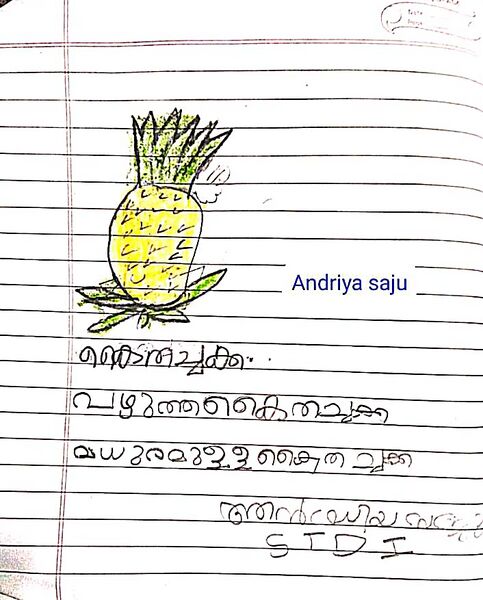 Andriya saju
കൈതച്ചക്ക..
പഴുത്തകൈതച്ചക്ക
മധുരമുള്ള കൈത ച്ചക്ക
ആൻഡ്രിയ സജു
STD I